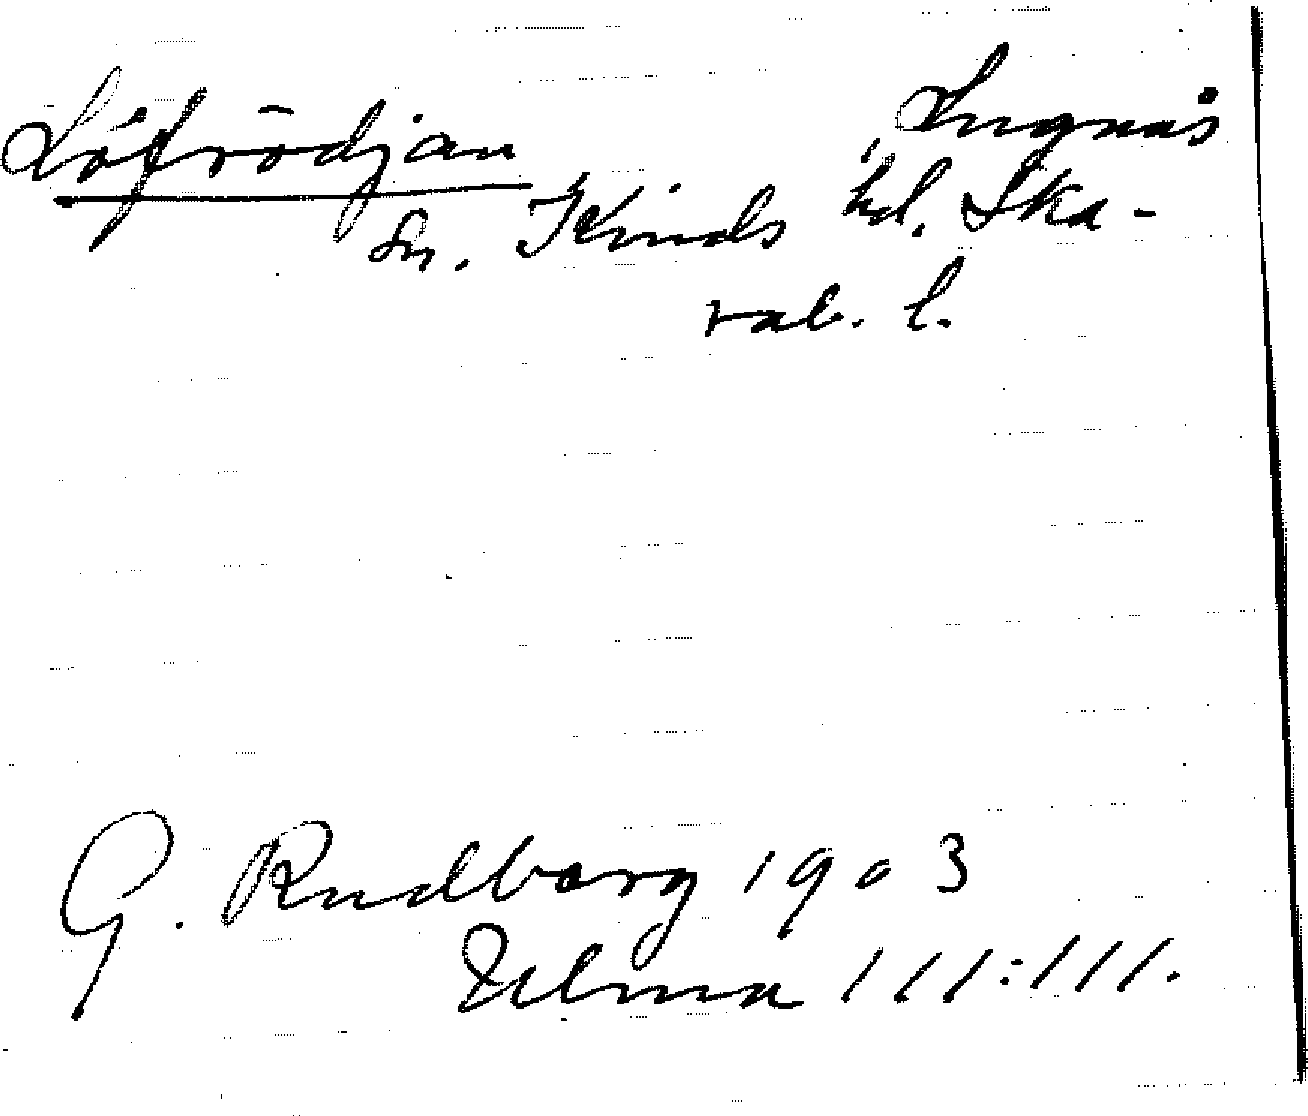 Löfrödjan Lugnås
sn. Kinds hd. Ska-
rab. l.
G. Rudberg 1903
Ulma 111:111.